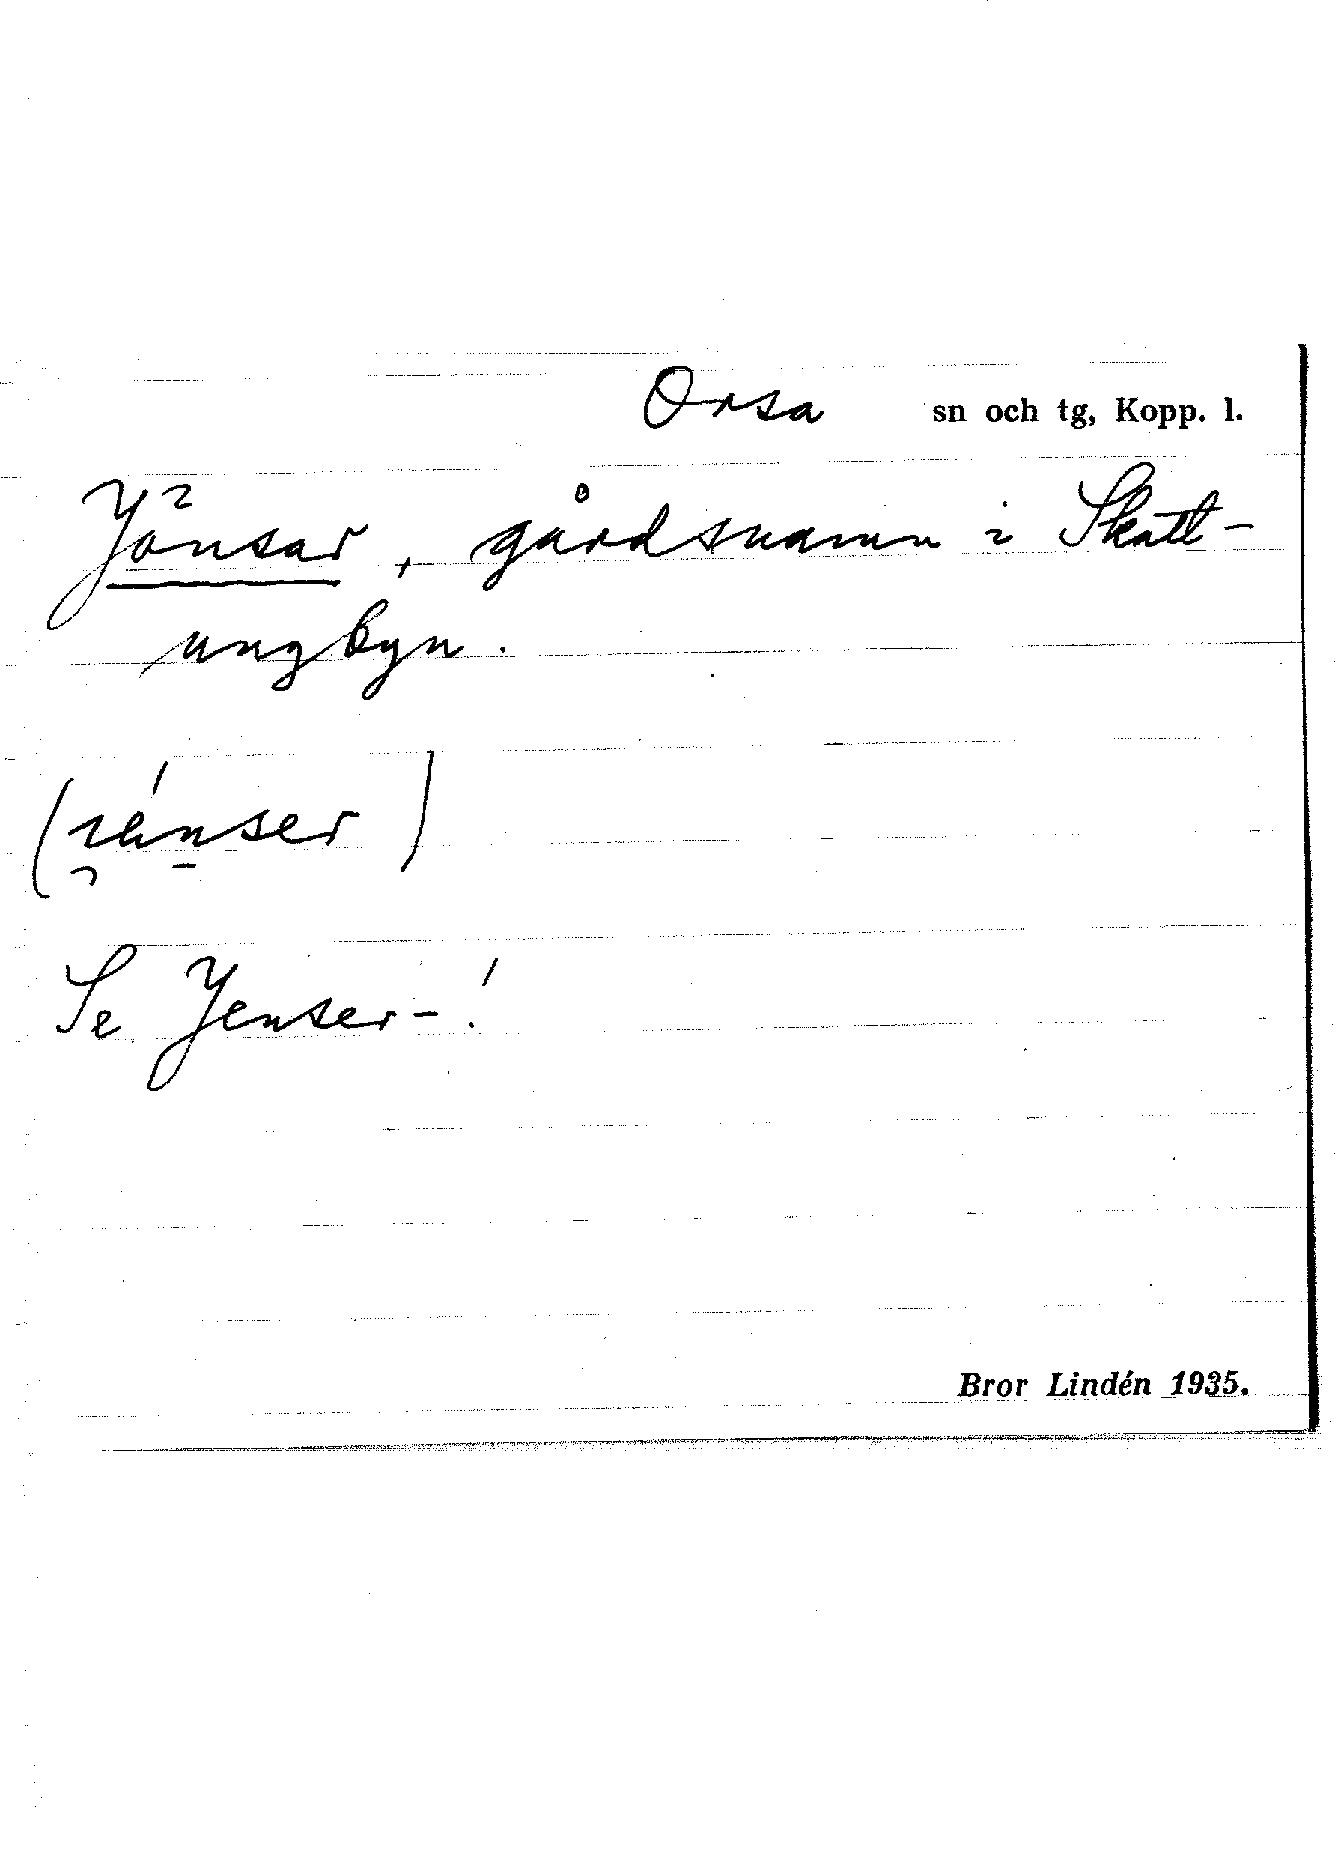 Orsa sn och tg, Kopp. l.
Jönsar, gårdsnamn i Skatt-
ungbyn.
Se Jenser-!
Bror Lindén 1935.